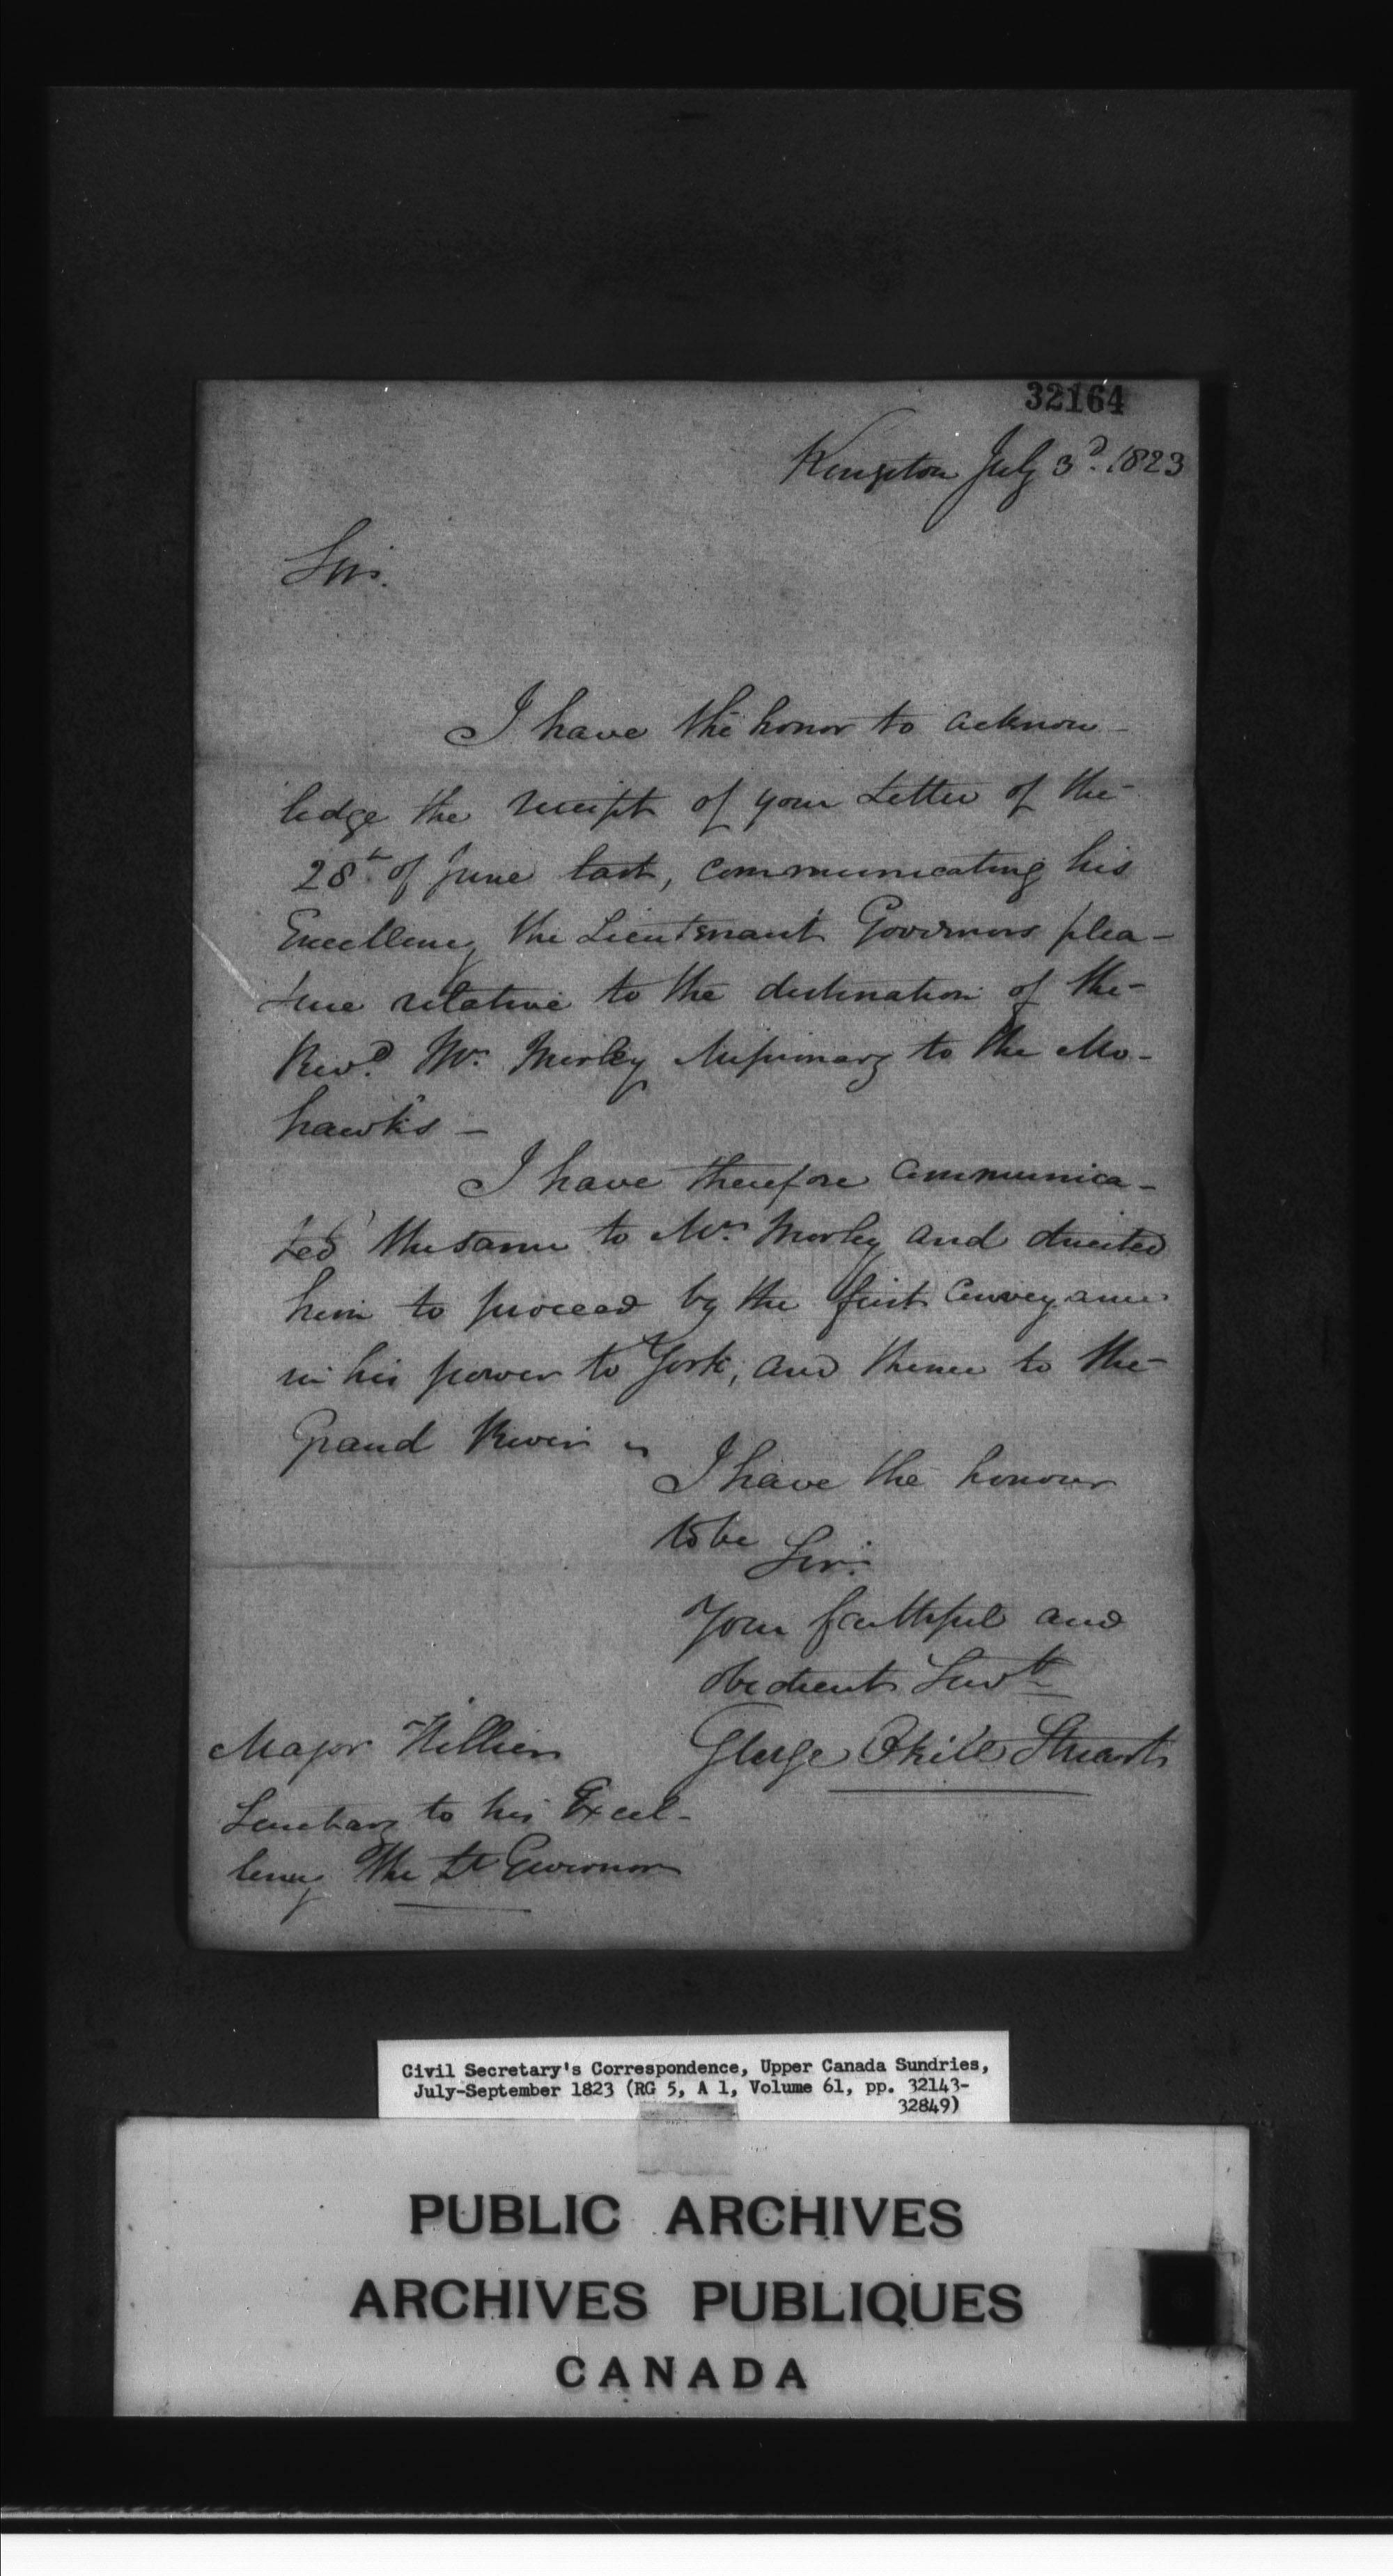 32164
Kingston July 3d. 1823
Sir.
I have the honor to acknow-
ledge the receipt of your Letter of the
28th of June last, communicating his
Excellency the Lieutenant Governors plea-
sure relative to the destination of the
Revd. Mr. Morley Missionary to the Mo-
hawks -
I have therefore communica-
ted the same to Mr. Morley and directed
him to proceed by the first conveyance
in his power to York, and thence to the
Grand River
I have the honour
to be
Sir.
Your faithful and
obedient Servt
George Okill Stuart
Major Hillier
Secretary to his Excel-
lency the Lt Governor
Civil Secretary's Correspondence, Upper Canada Sundries,
July-September 1823 (RG 5, A 1, Volume 61, pp. 32143-
32849)
PUBLIC ARCHIVES
ARCHIVES PUBLIQUES
CANADA